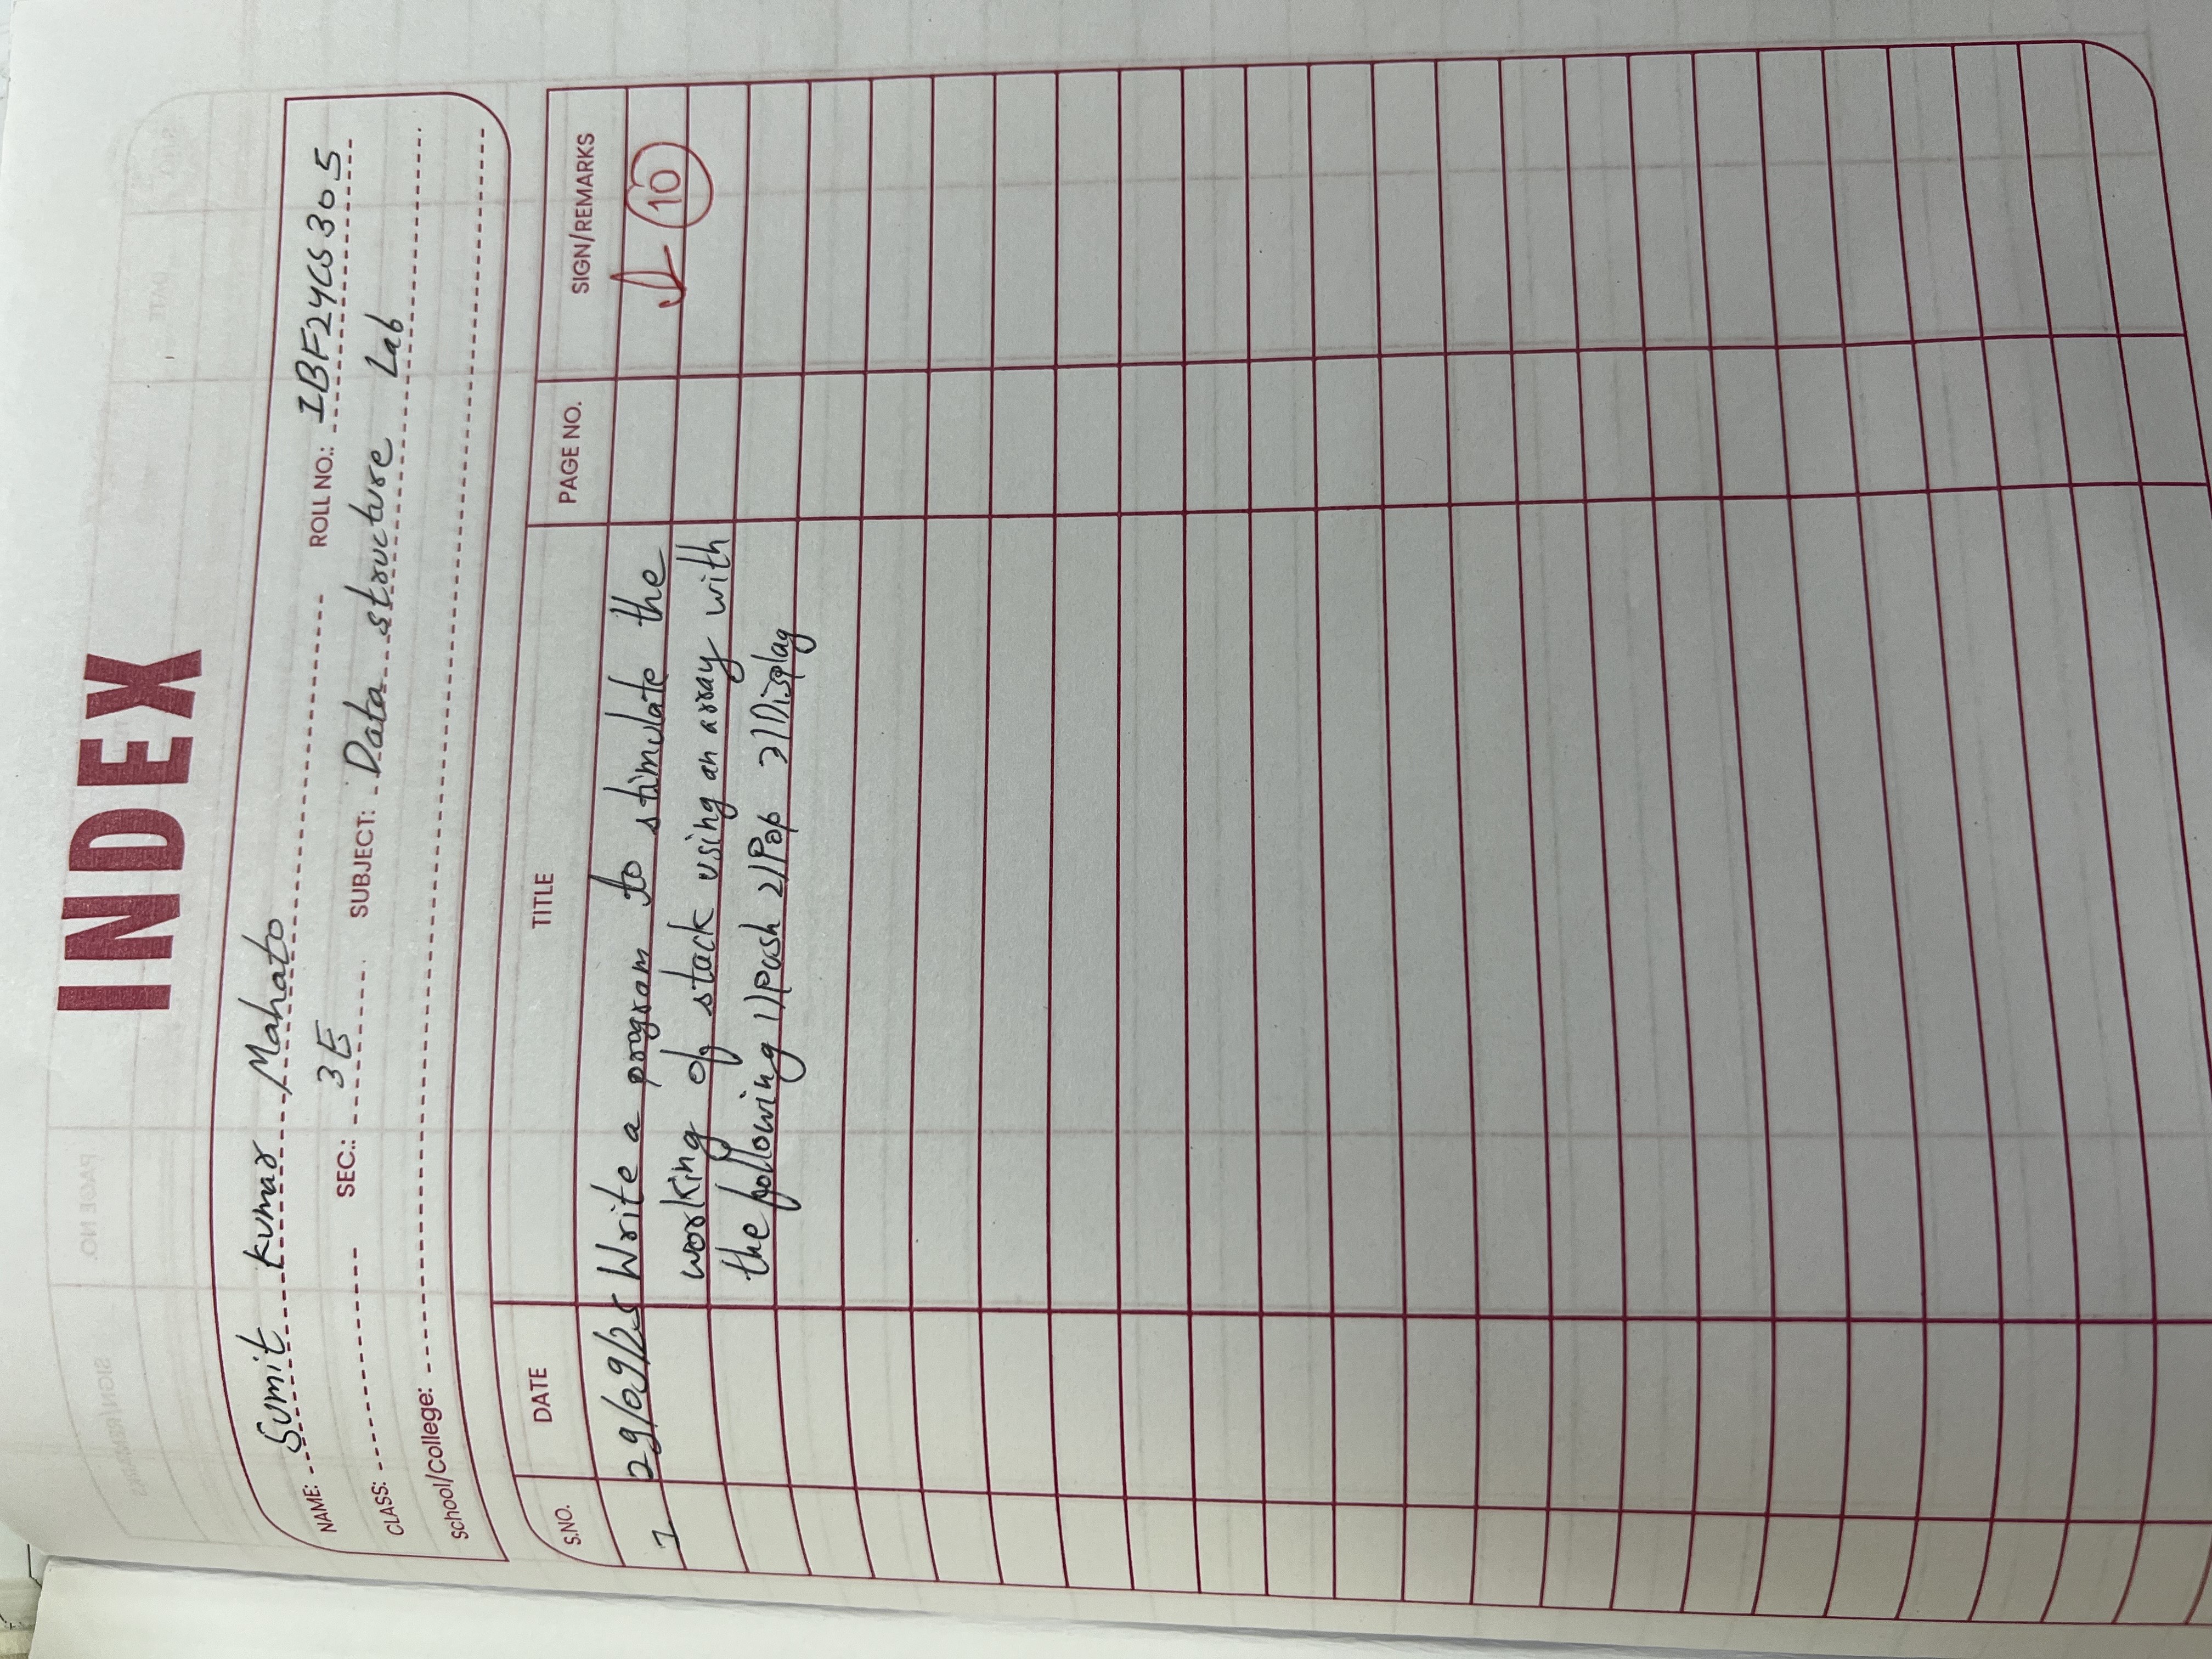 INDEX
NAME: Sumit Kumar Mahato ROLL NO.: IBF24CS305
CLASS: SEC.: 3E SUBJECT: Data structure Lab
School/College:
S.NO. DATE TITLE PAGE NO. SIGN/REMARKS
1 29/09/25 Write a program to stimulate the 10
working of stack using an array with
the following 1) Push 2) Pop 3) Display